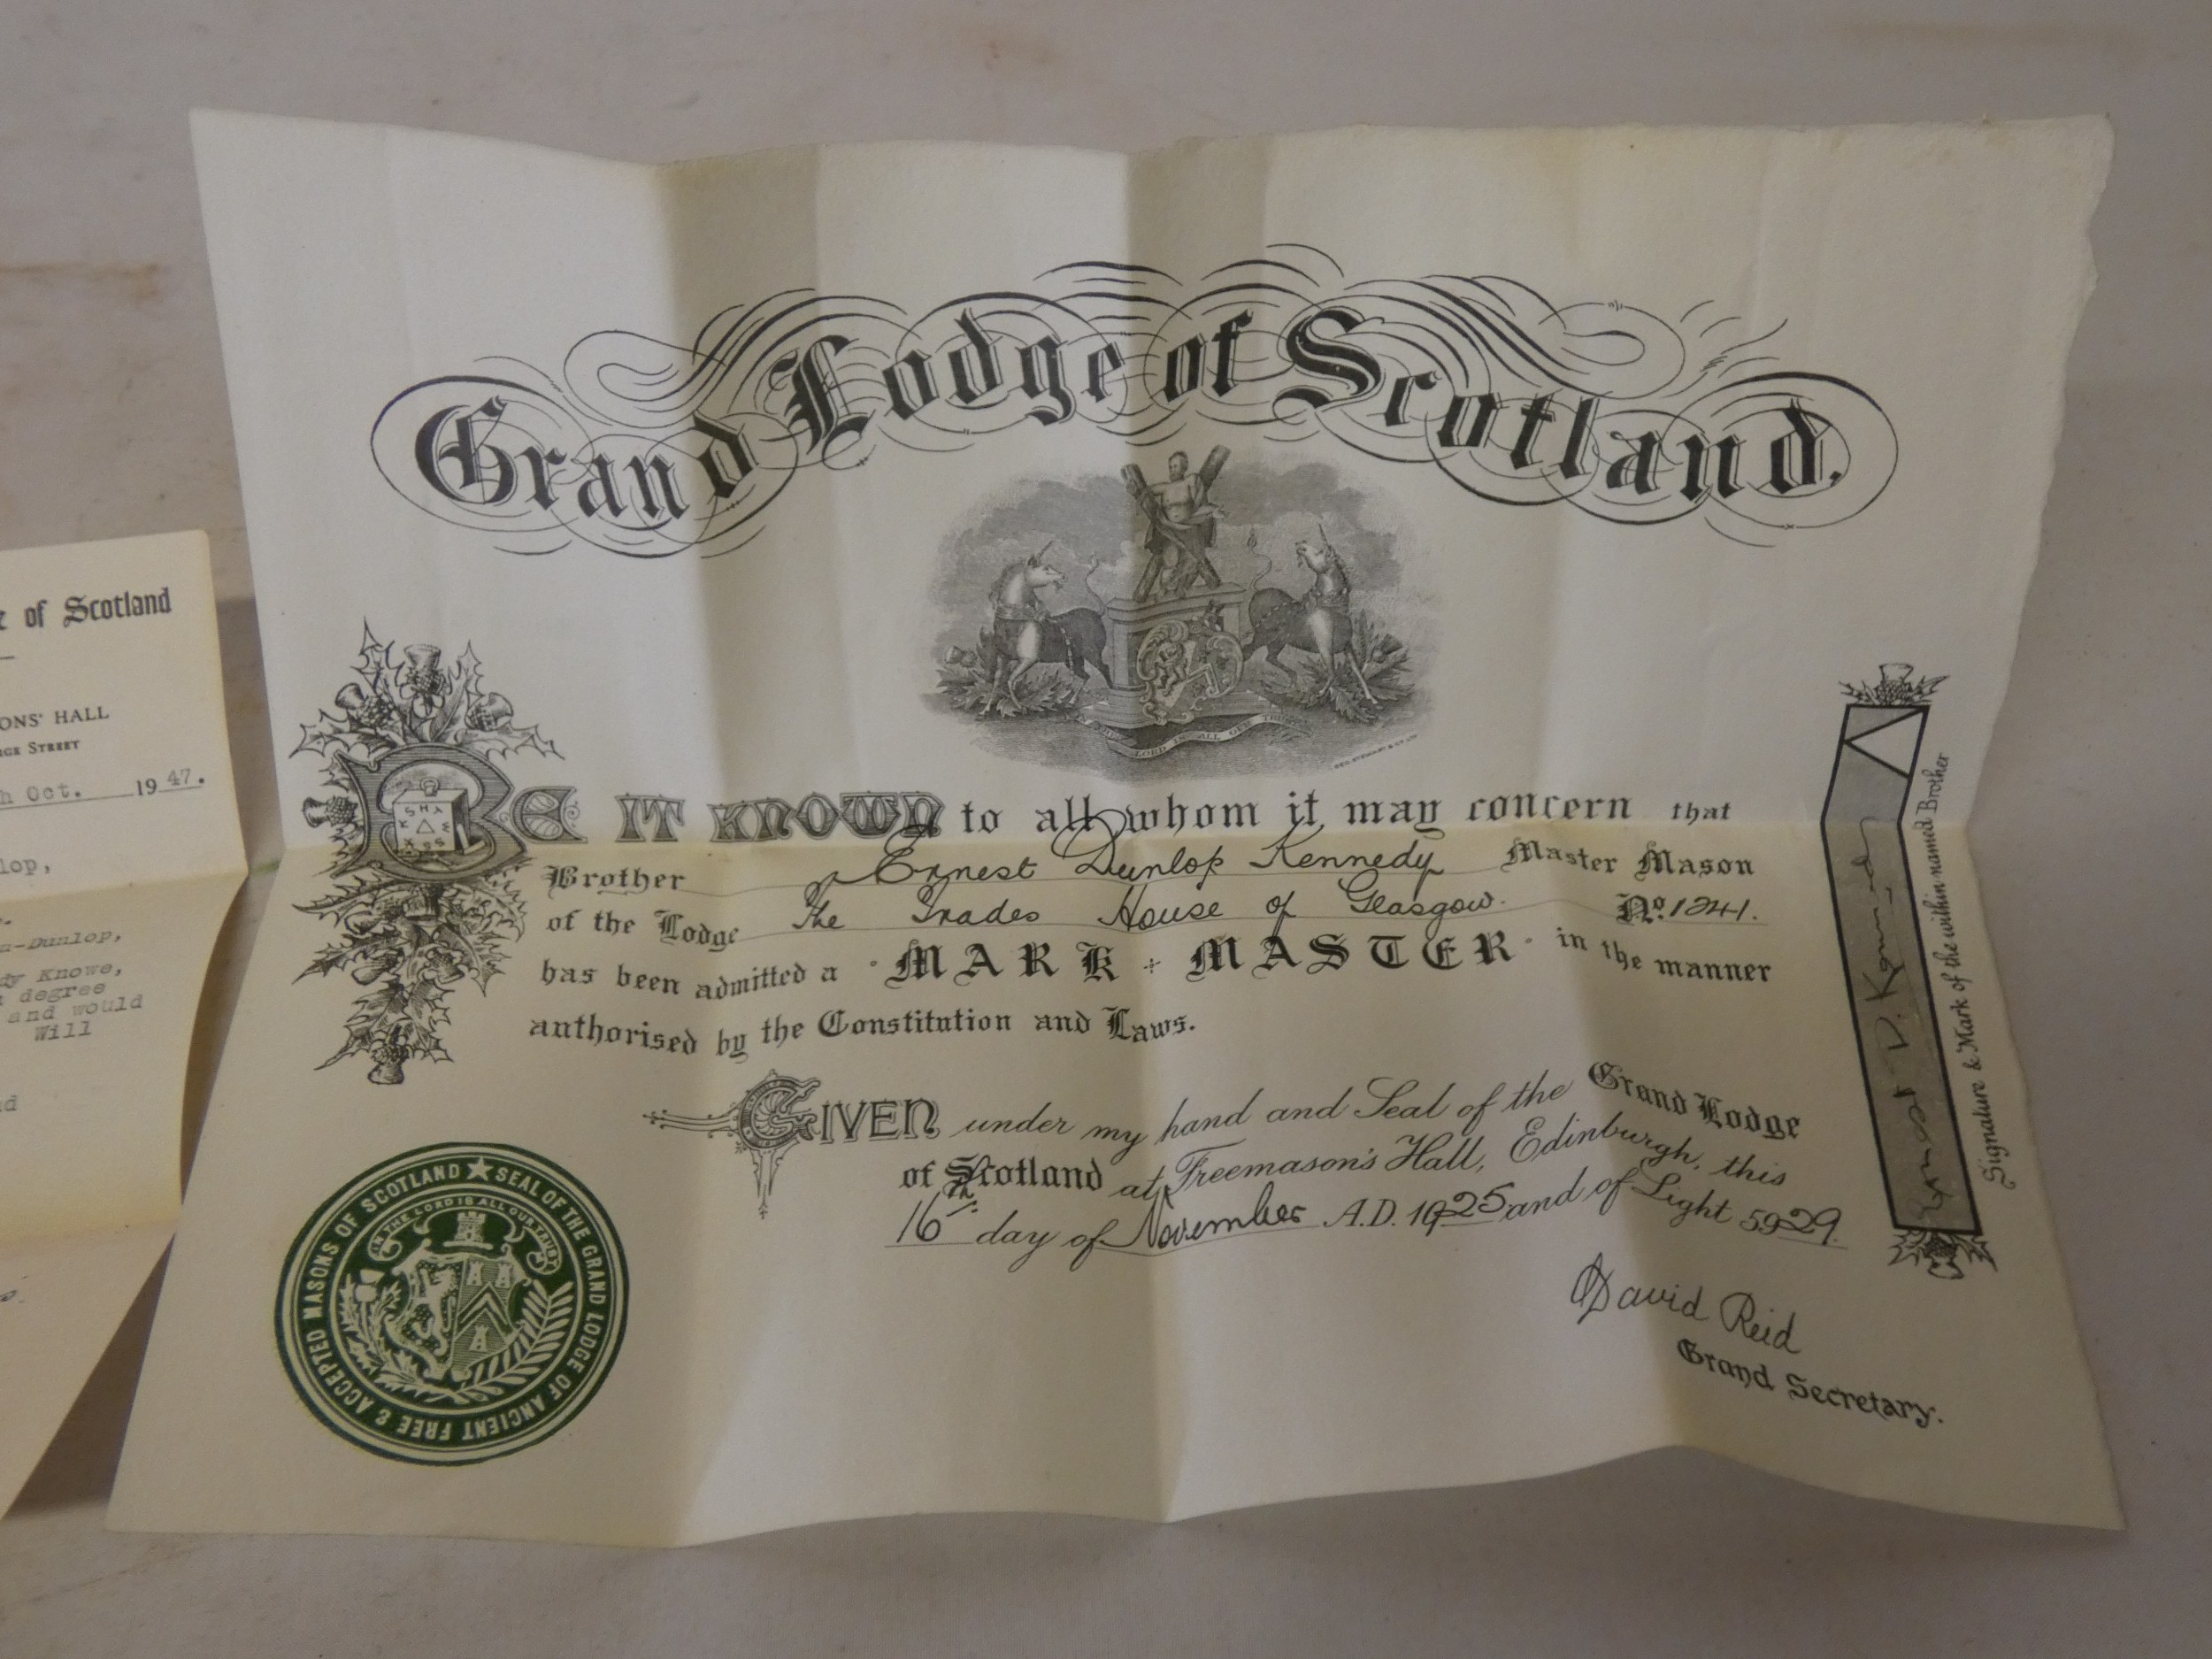 Grand Lodge of Scotland.
LORD IS ALL OUR
BE IT KNOWN to all whom it may concern that
Brother Ernest Dunlop Kennedy Master Mason
of the Lodge The Trades House of Glasgow. No. 1241.
has been admitted a · MARK + MASTER · in the manner
authorised by the Constitution and Laws.
GIVEN under my hand and Seal of the Grand Lodge
of Scotland at Freemason's Hall, Edinburgh, this
16th day of November A.D. 1925 and of Light 5929.
David Reid
Grand Secretary.
Ernest D. Kennedy
Signature & Mark of the within-named Brother
SEAL OF THE GRAND LODGE OF ANCIENT FREE & ACCEPTED MASONS OF SCOTLAND
IN THE LORD IS ALL OUR TRUST
of Scotland
ONS' HALL
STREET
Oct. 1947.
lop,
-Dunlop,
dy Knowe,
degree
and would
Will